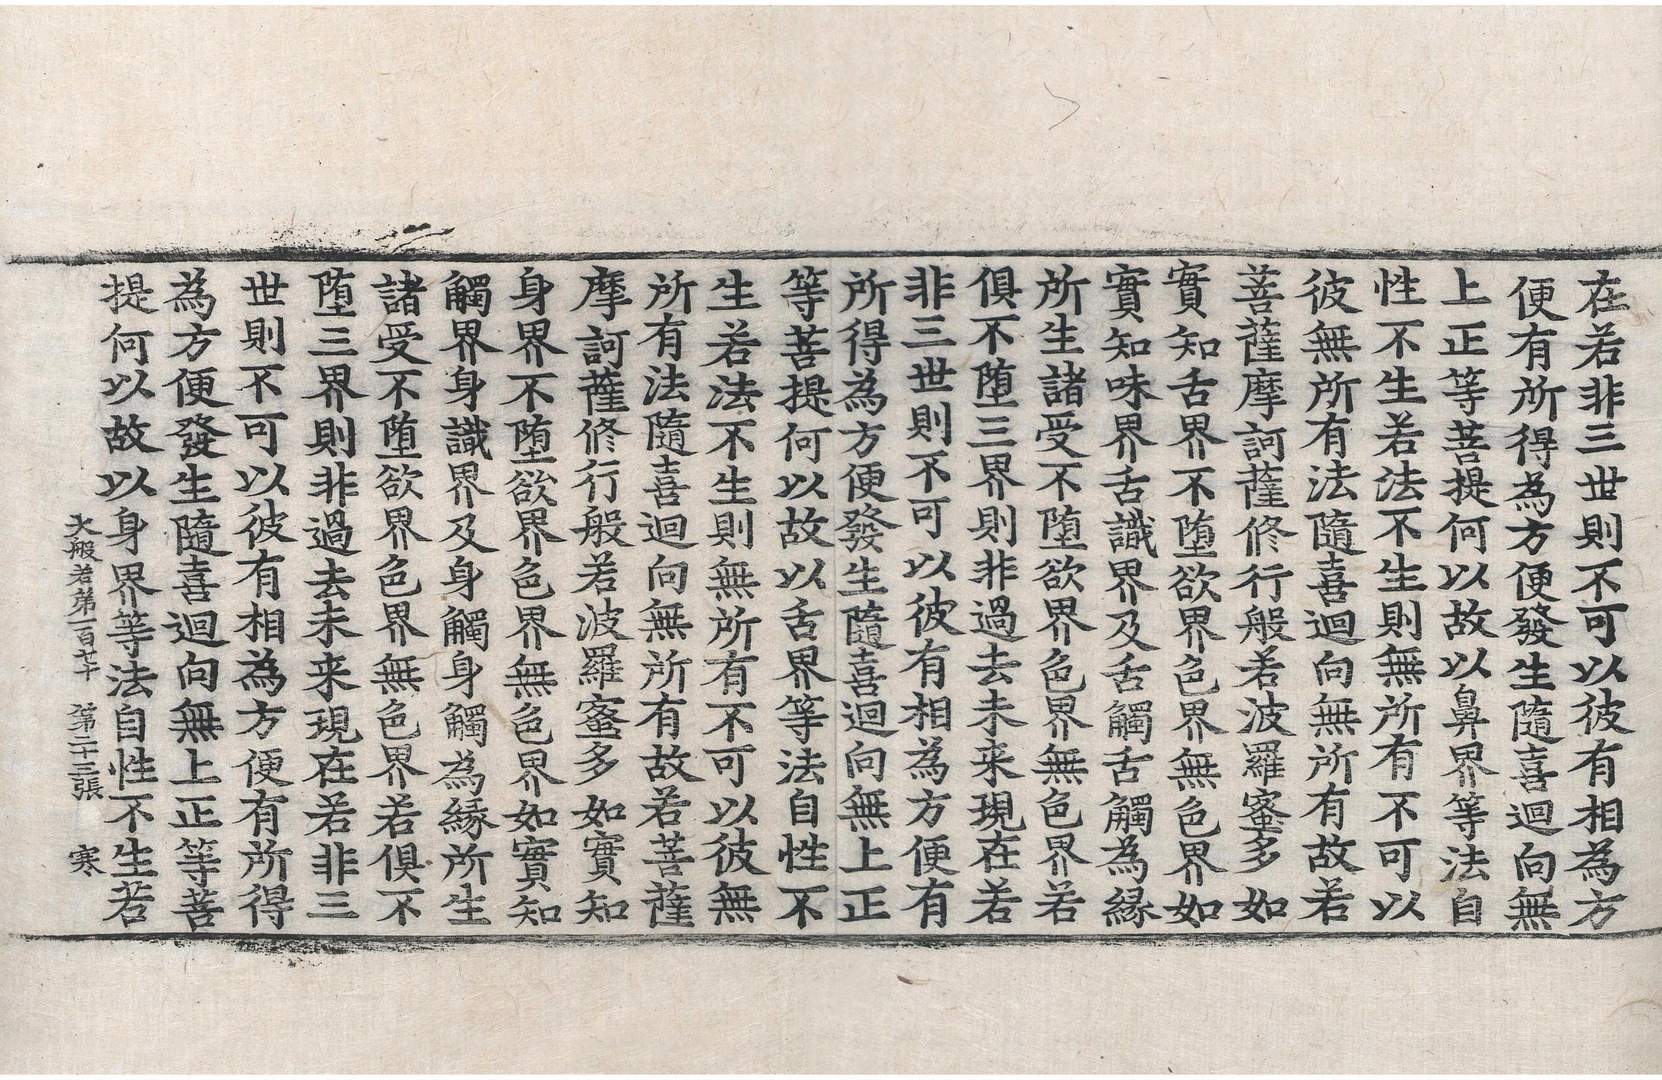 在若非三世則不可以彼有相為方
便有所得為方便發生隨喜迴向無
上正等菩提何以故以鼻界等法自
性不生若法不生則無所有不可以
彼無所有法隨喜迴向無所有故若
菩薩摩訶薩修行般若波羅蜜多如
實知舌界不堕欲界色界無色界如
實知味界舌識界及舌觸舌觸為緣
所生諸受不堕欲界色界無色界若
俱不堕三界則非過去未来現在若
非三世則不可以彼有相為方便有
所得為方便發生隨喜迴向無上正
等菩提何以故以舌界等法自性不
生若法不生則無所有不可以彼無
所有法隨喜迴向無所有故若菩薩
摩訶薩修行般若波羅蜜多如實知
身界不堕欲界色界無色界如實知
觸界身識界及身觸身觸為緣所生
諸受不堕欲界色界無色界若俱不
堕三界則非過去未来現在若非三
世則不可以彼有相為方便有所得
為方便發生隨喜迴向無上正等菩
提何以故以身界等法自性不生若
大般若第一百七十 第二十三張 寒